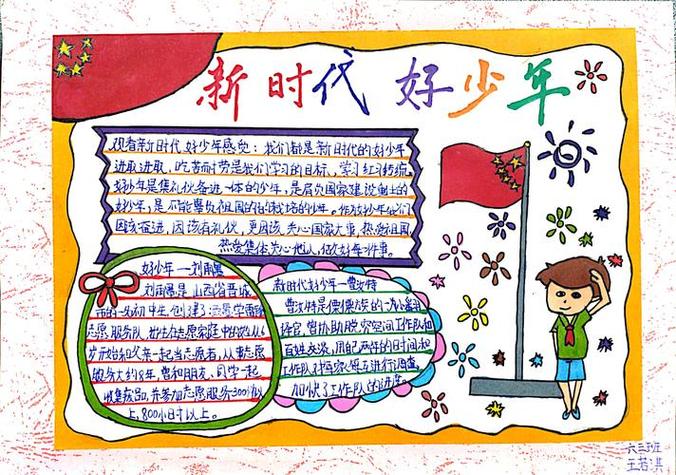 新时代 好少年
观看新时代好少年感觉：我们都是新时代的好少年
进取进取，吃苦耐劳是我们学习的目标，学习红领传统
好少年是集礼仪备进一体的少年，是肩负国家建设重任的
好少年，是不能辜负祖国的栽培的少年。作为好少年他们
因该奋进，因该有礼仪，更因该关心国家大事，热爱祖国
热爱集体关心他人，做好每件事。
好少年——刘雨
刘雨是山西省晋城
市的一名初中生，创建了
志愿服务队，出生在志愿家庭中的她从6
岁开始和父亲一起当志愿者，从事志愿
服务大约8年，曾和朋友、同学一起
收集衣品，并参加志愿服务300小时以
上，800小时以上。
新时代好少年—曹汝特
曹汝特是傈僳族的一九小翻
译官，曾协助脱贫空间工作队和
百姓交谈，用自己两年的时间和
工作队对两家贫互进行调查，
加快了工作队的进度。
六三班
王若淇